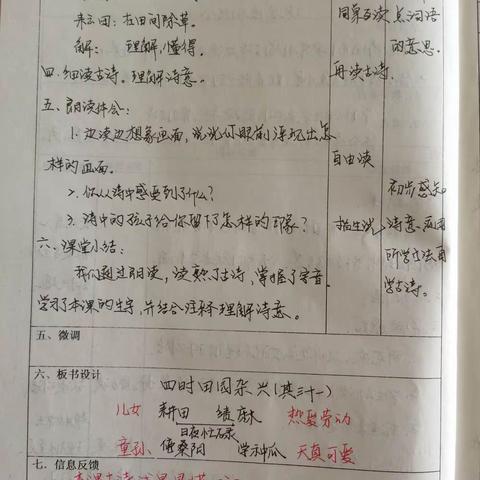 耘田：在田间除草。
解：理解，懂得。
四、细读古诗。理解诗意。
五、朗读体会：
1. 边读边想象画面，说说你眼前浮现出怎
样的画面。
2. 你从诗中感受到了什么？
3. 诗中的孩子给你留下怎样的印象？
六、课堂小结：
我们通过朗读，读熟了古诗，掌握了字音
学习了本课的生字，并结合注释理解诗意。
同桌互读
再读古诗。
自由读
指生说
点词语
的意思。
初步感知
诗意，应用
所学方法自
学古诗。
五、微调
六、板书设计
四时田园杂兴（其三十一）
儿女 耕田 绩麻 热爱劳动
日夜忙碌
童孙 傍桑阴 学种瓜 天真可爱
七、信息反馈